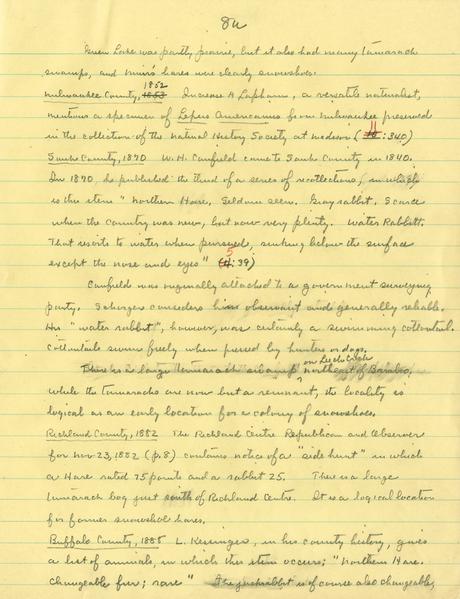 8a
Green Lake was partly prairie, but it also had many tamarack
swamps, and Muir's hares were clearly snowshoes.
1852
Milwaukee County, 1853 Increase A Lapham, a versatile naturalist,
mentions a specimen of Lepus Americanus from Milwaukee preserved
in the collection of the Natural History Society at Madison (11:340)
Sauk County, 1870 W. H. Canfield came to Sauk County in 1840.
In 1870, he published the third of a series of recollections, in which
is this item "Northern Hare, Seldom seen. Gray rabbit. Scarce
when the country was new, but now very plenty. Water Rabbitt.
That resorts to water when pursued, sinking below the surface
except the nose and eyes" (5:39)
Canfield was originally attached to a government surveying
party. Schorger considers him observant and generally reliable.
His "water rabbit", however, was certainly a swimming cottontail.
Cottontails swim freely when pressed by hunters or dogs.
on Leech Creek
There is a large tamarack swamp northeast of Baraboo,
while the tamaracks are now but a remnant, the locality is
logical as an early location for a colony of snowshoes.
Richland County, 1882 The Richland Centre Republican and Observer
for Nov 23, 1882 (p.8) contains notice of a "side hunt" in which
a Hare rated 75 points and a rabbit 25. There is a large
tamarack bog just south of Richland Centre. It is a logical location
for former snowshoe hares.
Buffalo County, 1888 L. Kessinger, in his county history, gives
a list of animals, in which this item occurs; "Northern Hare.
Changeable fur; rare" The jackrabbit is of course also changeable,